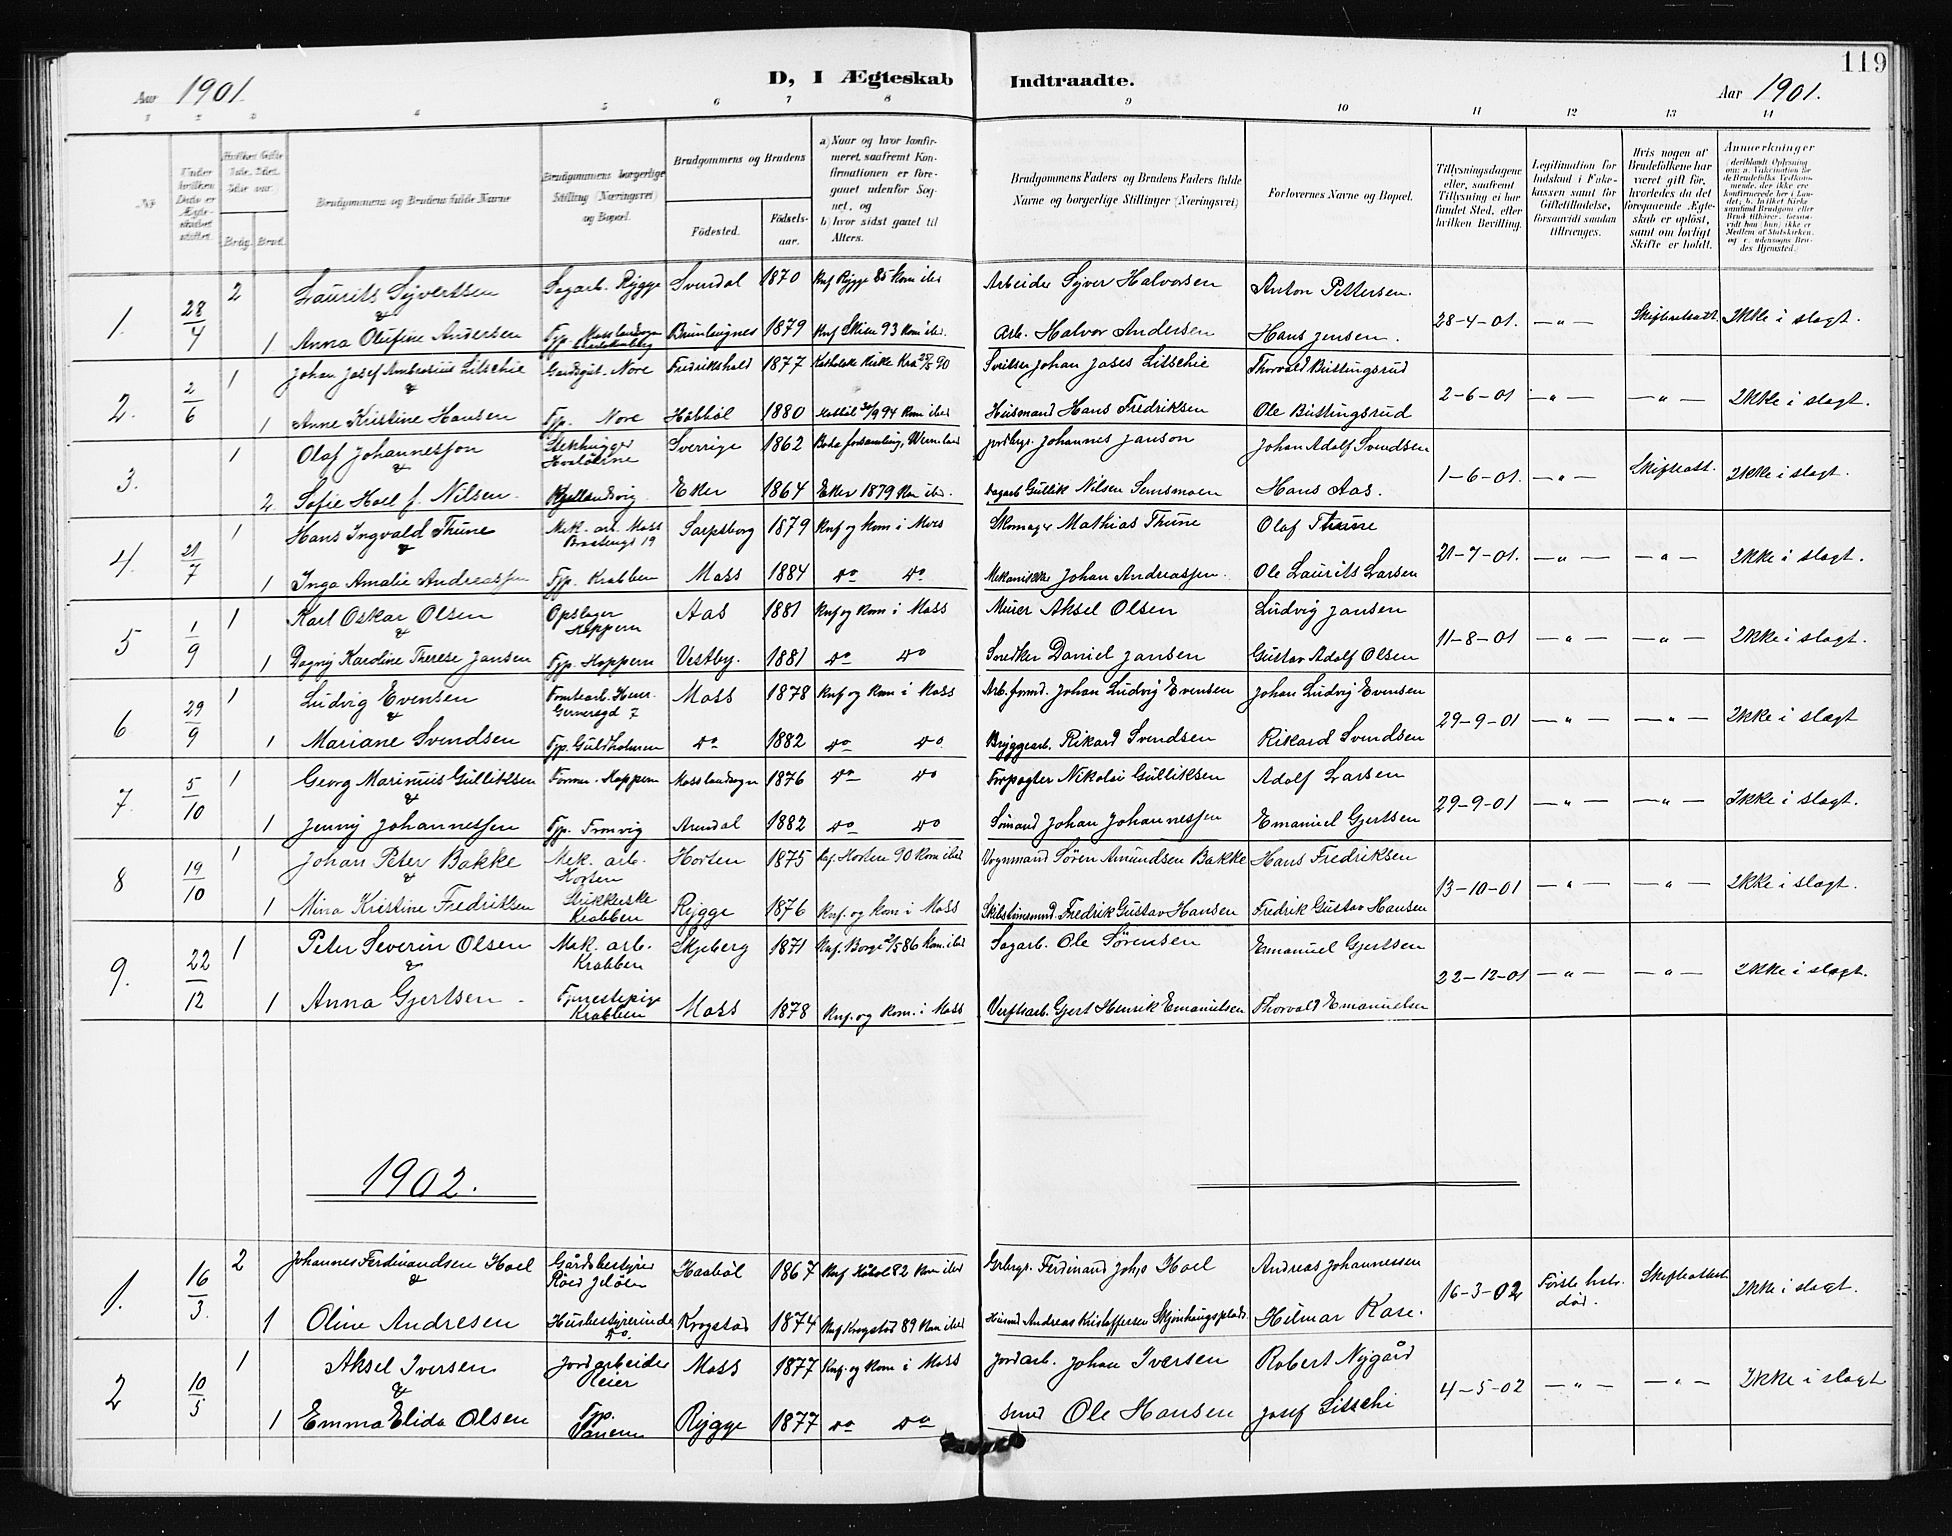 119
Aar 1901.
D, I Ægteskab Indtraadte.
Aar 1901.
1 2 3 4 5 6 7 8 9 10 11 12 13 14
No. | Under hvilken Dato er Ægteskabet stiftet. | Hvilket Gifte Brdg. Brud. | Brudgommens og Brudens fulde Navne | Brudgommens borgerlige Stilling (Næringsvei) og Bopæl. | Brudgommens og Brudens Fødested. Fødselsaar. | a) Naar og hvor konfirmeret, saafremt Konfirmationen er foregaaet udenfor Sognet, og b) hvor sidst gaaet til Alters. | Brudgommens Faders og Brudens Faders fulde Navne og borgerlige Stillinger (Næringsvei) | Forlovernes Navne og Bopæl. | Tillysningsdagene eller, saafremt Tillysning ei har fundet Sted, efter hvilken Bevilling. | Legitimation for Indskud i Enkekassen samt for Giftetilladelse, forsaavidt saadan tiltrænges. | Hvis nogen af Brudefolkene har været gift før, hvorledes da det foregaaende Ægteskab er opløst, samt om lovligt Skifte er holdt. | Anmærkninger
1. 28/4 2 Laurits Syvertsen & Sagarb. Rygge Svendal 1870 Knf Rygge 85 Kom ibid Arbeider Syver Halvorsen Anton Pettersen. 28-4-01. —"— Skifteattest Ikke i slægt.
1 Anna Olufine Andersen Tjp. Mosslandsogn 1879 Knf Skien 93 Kom ibid. Arb. Halvor Andersen Hans Jensen.
2. 2/6 1 Johan Josef Ambrosius Litschie & Gardsgut. Nore Fredrikshald 1877 Katholske Kirke Kra 25/5 90 Sveitser Johan Joses Litschie Thorvald Bustingsrud 2-6-01 —"— —"— Ikke i slægt.
1 Anne Kristine Hansen Tjp. Nore Höbböl 1880 94 Kom ibid Husmand Hans Fredriksen Ole Bustingsrud
3. 1 Olaf Johannesson & Stenhugger Sverrige 1862 Boda forsamling, Wermland jordbrgr. Johannes Janson Johan Adolf Svendsen 1-6-01. —"— Skifteatt. Ikke i slægt.
2 Sofie Hoel f. Nilsen. Kjellandsvig. Eker 1864 Eker 1879 Kom ibid. Dagarb Gullik Nilsen Semsmoen Hans Aas.
4. 21/7 1 Hans Ingvald Thune & Mek. arb. Moss 19 Sarpsborg 1879 Knf og Kom i Moss Skomager Mathias Thune Olaf Thune 21-7-01. —"— —"— Ikke i slægt.
1 Inga Amalie Andreassen Tjp. Krabben Moss 1884 do do Johan Andreassen. Ole Laurits Larsen
5 1/9 1 Karl Oskar Olsen & Opslager Koppern Aas 1881 Knf og Kom i Moss Murer Aksel Olsen Ludvig Jansen 11-8-01 —"— —"— Ikke i slægt.
1 Dagny Karoline Therese Jansen Tjp. Koppern Vestby. 1881 do do Snedker Daniel Jansen Gustav Adolf Olsen
6 29/9 1 Ludvig Evensen & Tomtearb. Henr. Gernersgd 7 Moss 1878 Knf og Kom i Moss Arb. formd. Johan Ludvig Evensen Johan Ludvig Evensen 29-9-01 —"— —"— Ikke i slægt
1 Mariane Svendsen Tjp. Guldholmen do 1882 do do Bryggearb. Rikard Svendsen Rikard Svendsen
7. 5/10 1 Georg Marinius Gulliksen & Former. Koppern Mosslandsogn 1876 do do Forpagter Nikolai Gulliksen Adolf Larsen 29-9-01 —"— —"— Ikke i slægt.
1 Jenny Johannessen Tjp. Framvig Arendal 1882 do do Sömand Johan Johannessen Emanuel Gjertsen
8 19/10 1 Johan Peter Bakke & Mek. arb. Horten Horten 1875 Knf. Horten 90 Kom ibid Vognmand Sören Amundsen Bakke Hans Fredriksen 13-10-01 —"— —"— Ikke i slægt.
1 Mina Kristine Fredriksen Strikkerske Krabben Rygge 1876 Knf. og kom i Moss Skibstömmermd. Fredrik Gustav Hansen Fredrik Gustav Hansen
9. 22/12 1 Peter Severin Olsen & Mek. arb. Krabben Skjeberg 1871 Knf. Borge 2/5 86 Kom. ibid Sagarb. Ole Sörensen Emanuel Gjertsen 22-12-01 —"— —"— Ikke i slægt.
1 Anna Gjertsen Tjenestepige Krabben Moss 1878 Knf. og Kom. i Moss Verftsarb. Gjert Henrik Emanuelsen Thorvald Emanuelsen
1902.
1. 16/3. 2 Johannes Ferdinandsen Hoel & Gårdsbestyrer Röed Jelöen Haaböl 1867 Knf Höböl 82 Kom ibid Grbrgr. Ferdinand Johs Hoel Andreas Johannessen 16-3-02 Förste hstr. död. Skifteattest Ikke i slægt.
1 Oline Andresen Husbestyrerinde do. Krogstad 1874 Knf Krogstad 89 Kom ibid Husmd Andreas Kristoffersen Skjönhaugsplads Helmar Kase.
2 10/5 1 Aksel Iversen & Jordarbeider Reier Moss 1877 Knf. og Kom i Moss Jordarb. Johan Iversen Robert Nygård 4-5-02 —"— —"— Ikke i slægt
1 Emma Elida Olsen Tjp. Rygge 1877 do do Smed Ole Hansen Josef Litschi